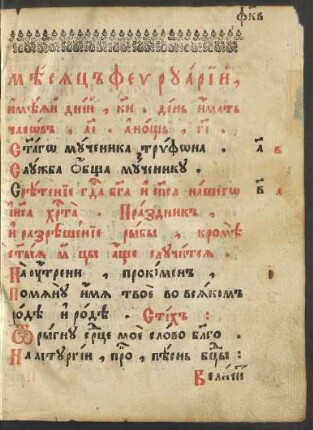 фк҃в
мѣсяцъ феѵруарїй,
имѣяй днїй, к҃и. день имать
часѡвъ, а҃і. а нощь, г҃і.
Ст҃аго мученика трѵфѡна. а҃ в
Служба ѻбща мученику.
Срѣтенїе гд҃а бг҃а и сп҃са нашегѡ в҃ д
іи҃са хр҃та. Праздникъ,
и разрѣшенїе рыбы, кромѣ
ст҃ыѧ м҃цы аще случится.
На оутрени, прокімен,
Помяну имя твое во всякомъ
родѣ и родѣ. Стїхъ:
Ѿрыгну ср҃це мое слово бл҃го.
На літургїи, про, пѣснь бц҃ы:
Велич